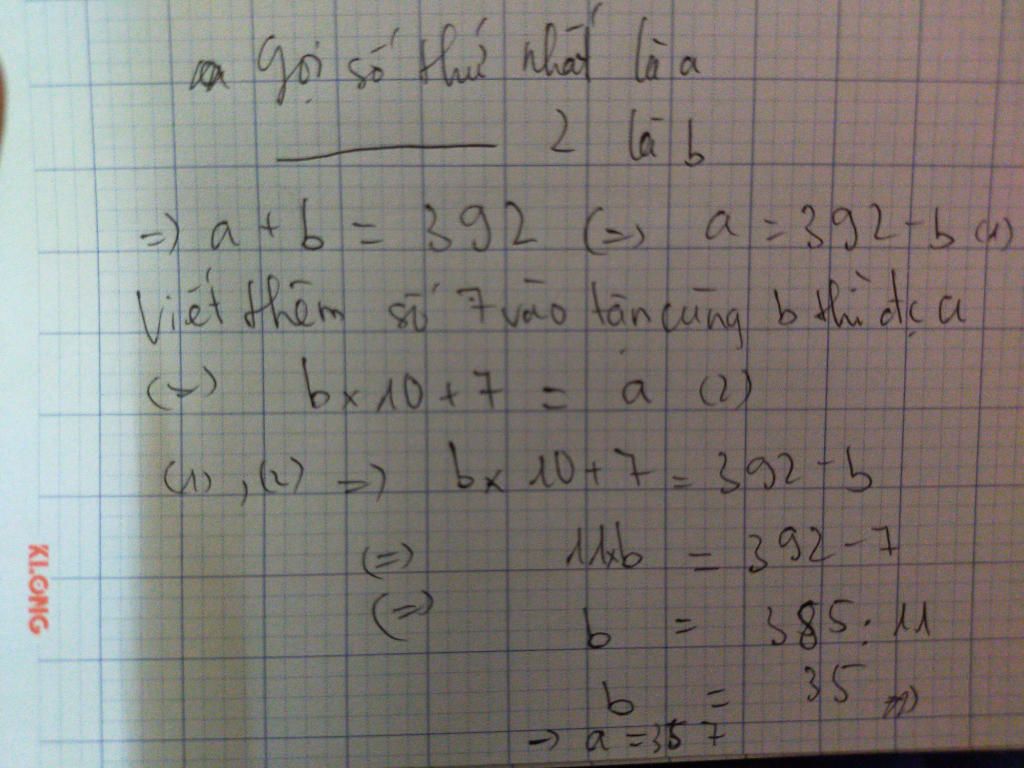 Gọi số thứ nhất là a
2 là b
=> a + b = 392 <=> a = 392 - b (1)
Viết thêm số 7 vào tận cùng b thì đc a
<=> b x 10 + 7 = a (2)
(1), (2) => b x 10 + 7 = 392 - b
<=> 11 x b = 392 - 7
<=> b = 385 : 11
b = 35 =>
-> a = 357
KLONG